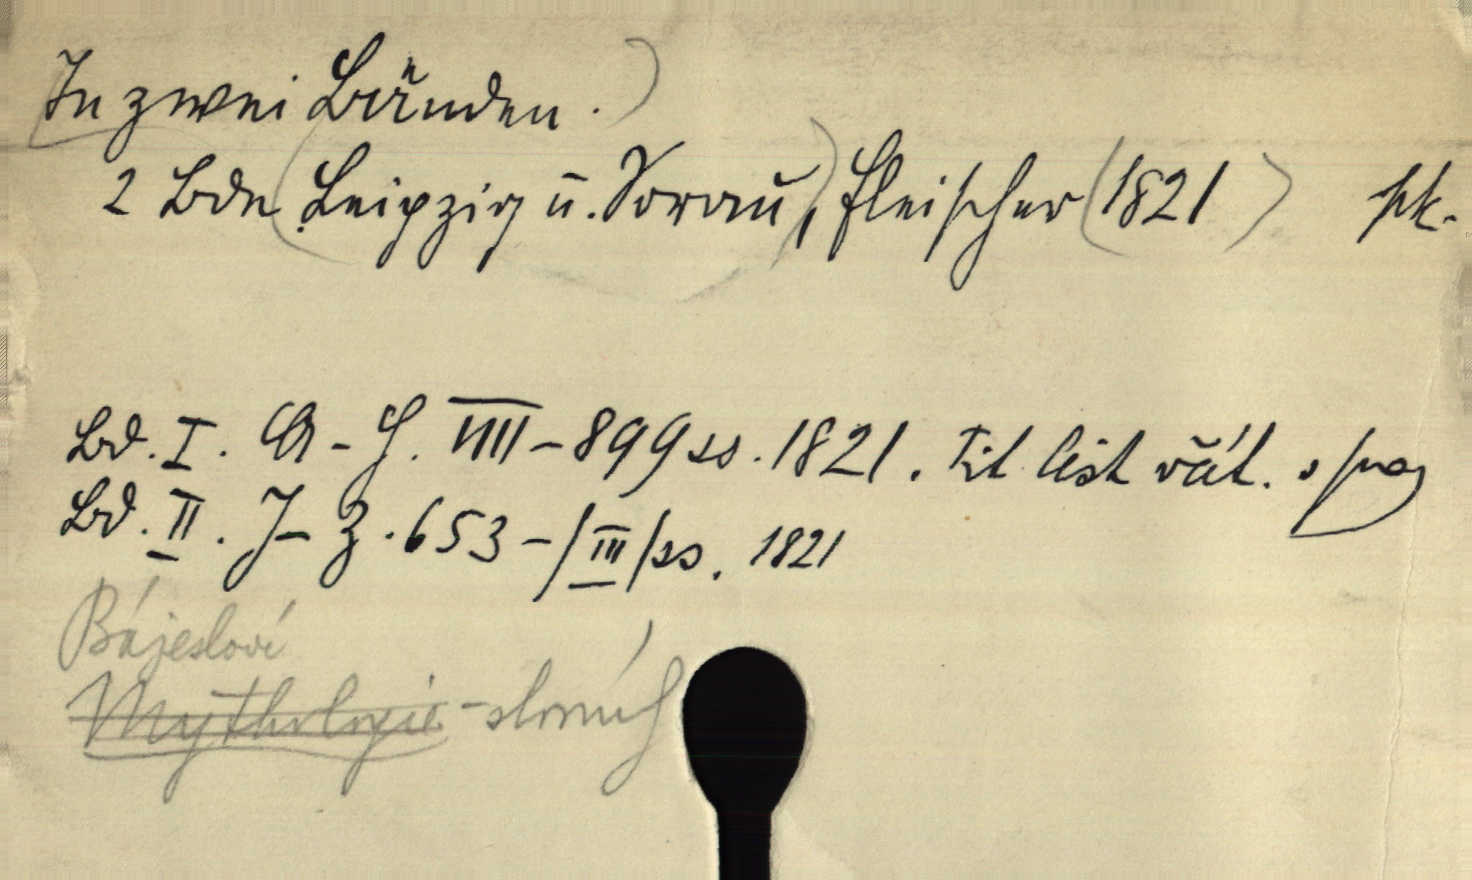 In zwei Bänden.)
2 Bde (Leipzig u. Sorau), Fleischer (1821)
Bd. I. A-H. VIII-899 ss. 1821. Tit list răt.
Bd. II. J-Z. 653-/III/ss. 1821
Bájesloví
Mythologie-slovník